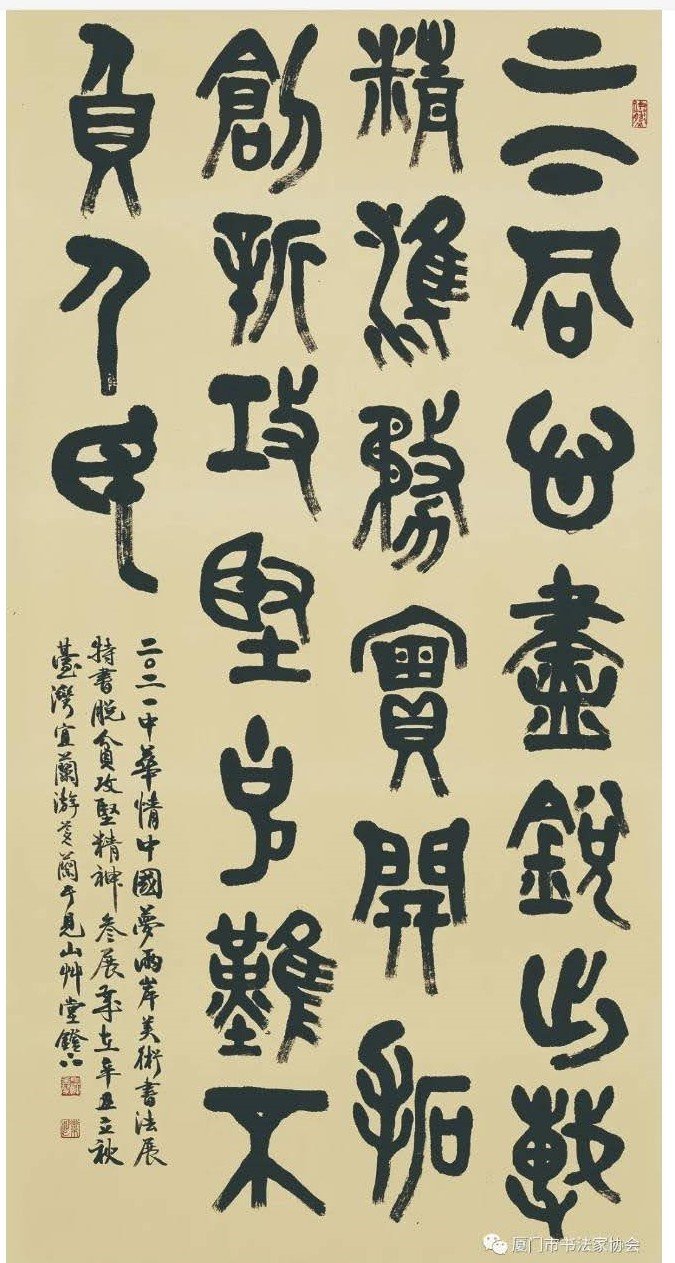 上下同心盡銳出戰
精準務實開拓
創新攻堅克難不
負人民
二〇二一中華情中國夢兩岸美術書法展
特書脫貧攻堅精神參展歲在辛丑立秋
臺灣宜蘭游蘭于見山艸堂鐙下
厦门市书法家协会